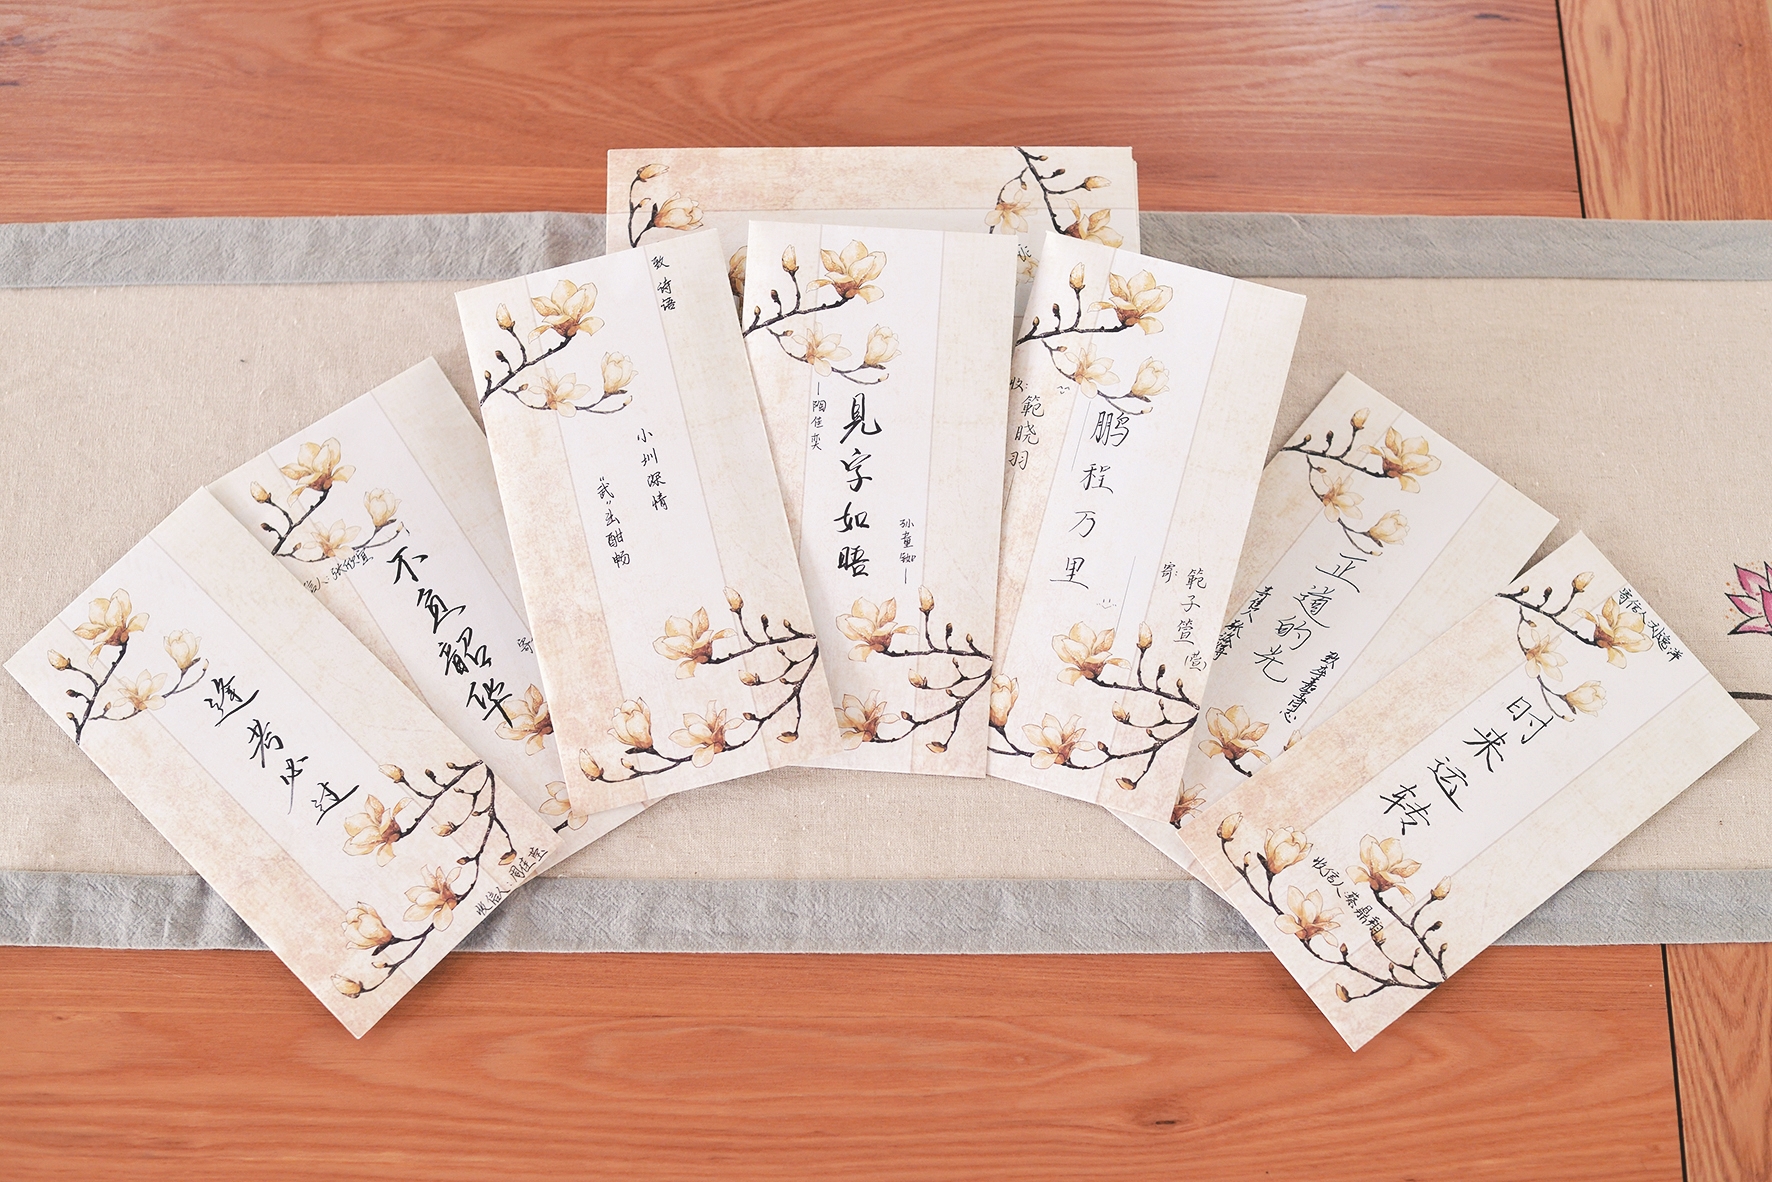 逢考必过
收信人:周佳莹
信人:张欣宜
不负韶华
寄
致诗语
小圳深情
“武”出酣畅
见字如晤
—阳佳奕
孙童
收:
範晓羽
鹏程万里
寄:
範子萱
正道的光
寄信人刘德洋
时来运转
收信人:秦鼎翔